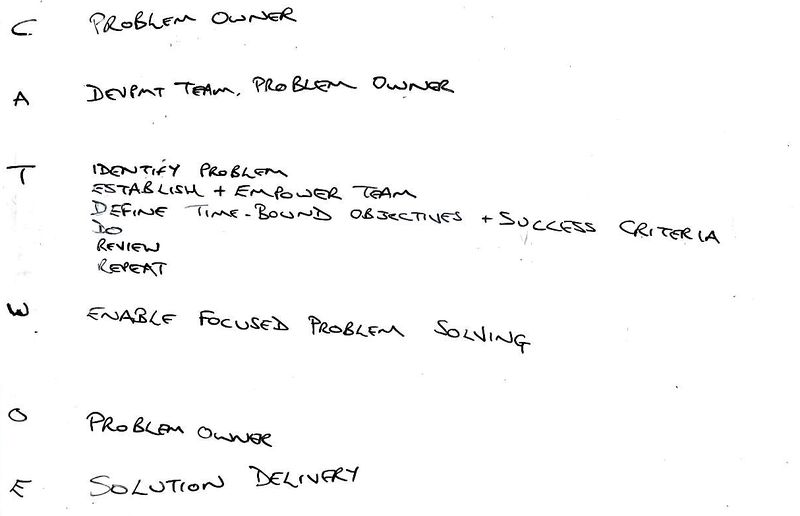 C PROBLEM OWNER
A DEVPMT TEAM, PROBLEM OWNER
T IDENTIFY PROBLEM
ESTABLISH + EMPOWER TEAM
DEFINE TIME-BOUND OBJECTIVES + SUCCESS CRITERIA
DO
REVIEW
REPEAT
W ENABLE FOCUSED PROBLEM SOLVING
O PROBLEM OWNER
E SOLUTION DELIVERY